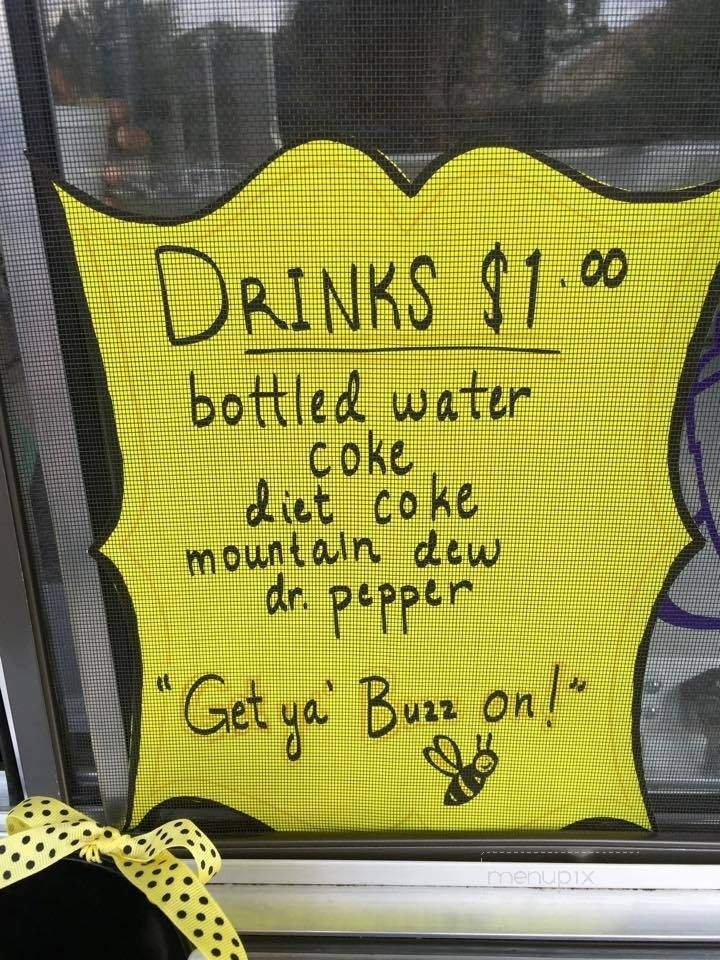 DRINKS $1.00
bottled water
coke
diet coke
mountain dew
dr. pepper
"Get ya' Buzz on!"
menupix